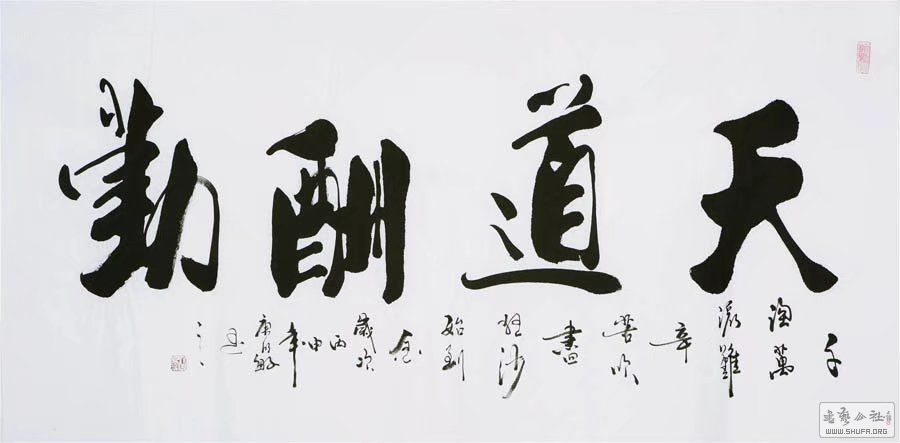 天道酬勤
千
淘萬
漉雖
辛
苦吹
盡
狂沙
始到
金
歲次
丙申
年
書藝公社
WWW.SHUFA.ORG